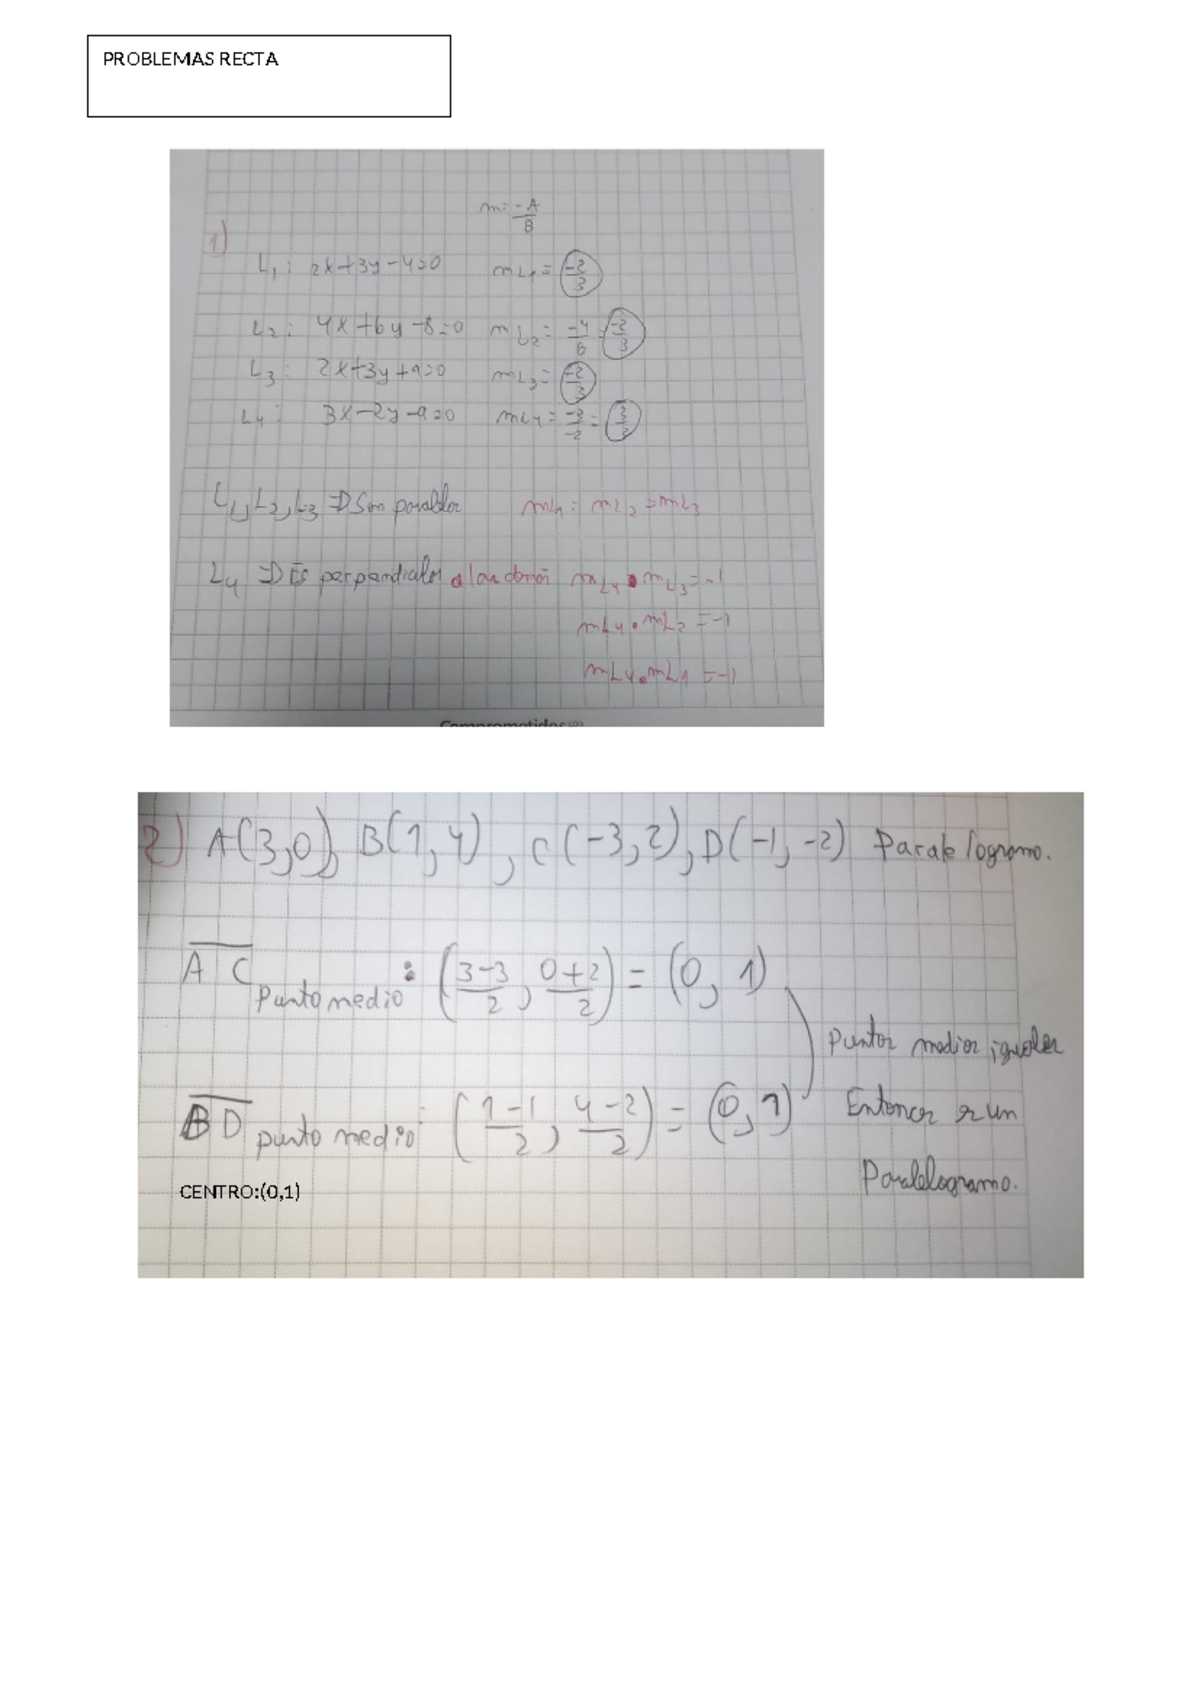 PROBLEMAS RECTA
m = -A/B
1)
L1: 2x+3y-4=0 mL1 = -2/3
L2: 4x+6y-8=0 mL2 = -4/6 = -2/3
L3: 2x+3y+9=0 mL3 = -2/3
L4: 3x-2y-9=0 mL4 = -3/-2 = 3/2
L1, L2, L3 ⇒ Son paralelas mL1 = mL2 = mL3
L4 ⇒ Es perpendicular a las demás mL4 • mL3 = -1
mL4 • mL2 = -1
mL4 • mL1 = -1
Comprometidos
2) A(3,0), B(1,4), C(-3,2), D(-1,-2) Paralelogramo.
AC Punto medio: (3-3/2, 0+2/2) = (0,1)
Puntos medios iguales
BD punto medio: (1-1/2, 4-2/2) = (0,1)
Entonces es un
Paralelogramo.
CENTRO:(0,1)